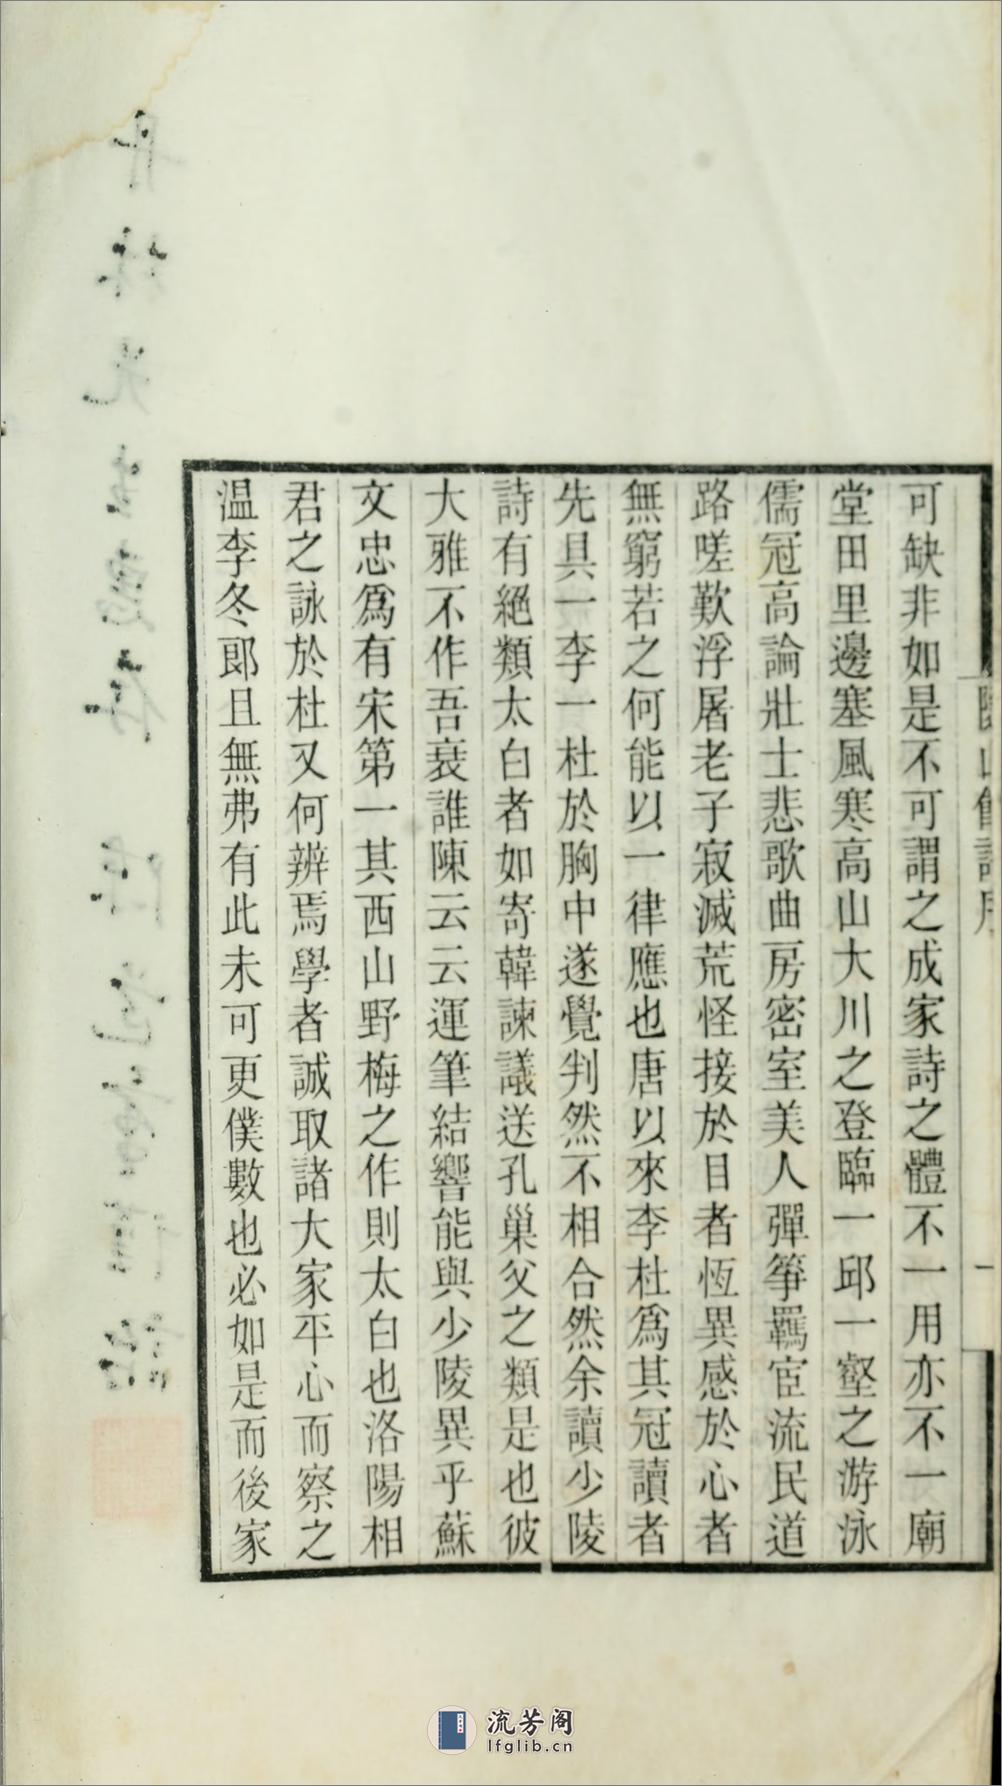 可缺非如是不可謂之成家詩之體不一用亦不一廟
堂田里邊塞風寒高山大川之登臨一邱一壑之游泳
儒冠高論壯士悲歌曲房密室美人彈箏羈宦流民道
路嗟歎浮屠老子寂滅荒怪接於目者恆異感於心者
無窮若之何能以一律應也唐以來李杜爲其冠讀者
先具一李一杜於胸中遂覺判然不相合然余讀少陵
詩有絕類太白者如寄韓諫議送孔巢父之類是也彼
大雅不作吾衰誰陳云云運筆結響能與少陵異乎蘇
文忠爲有宋第一其西山野梅之作則太白也洛陽相
君之詠於杜又何辨焉學者誠取諸大家平心而察之
温李冬郎且無弗有此未可更僕數也必如是而後家
流芳阁
lfglib.cn